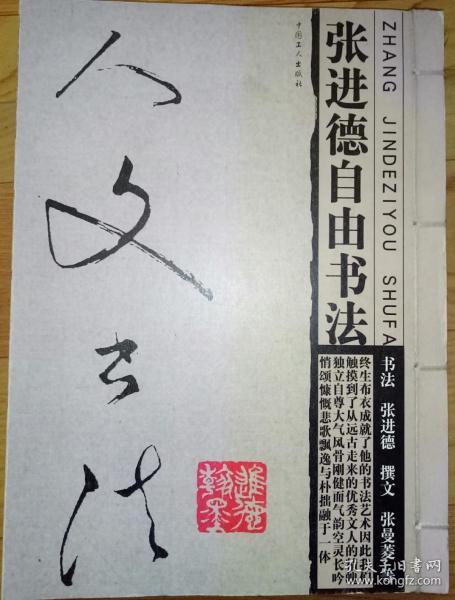 张进德自由书法
ZHANG JINDEZIYOU SHUFA
中国工人出版社
人文书法
書法 张进德 撰文 张曼菱
终生布衣成就了他的书法艺术因此我们
触摸到了从远古走来的优秀文人的
独立自尊大气风骨刚健而气韵空灵长吟
悄颂慷慨悲歌飘逸与朴拙融于一体
進德翰墨
孔夫子旧书网
kongfz.com